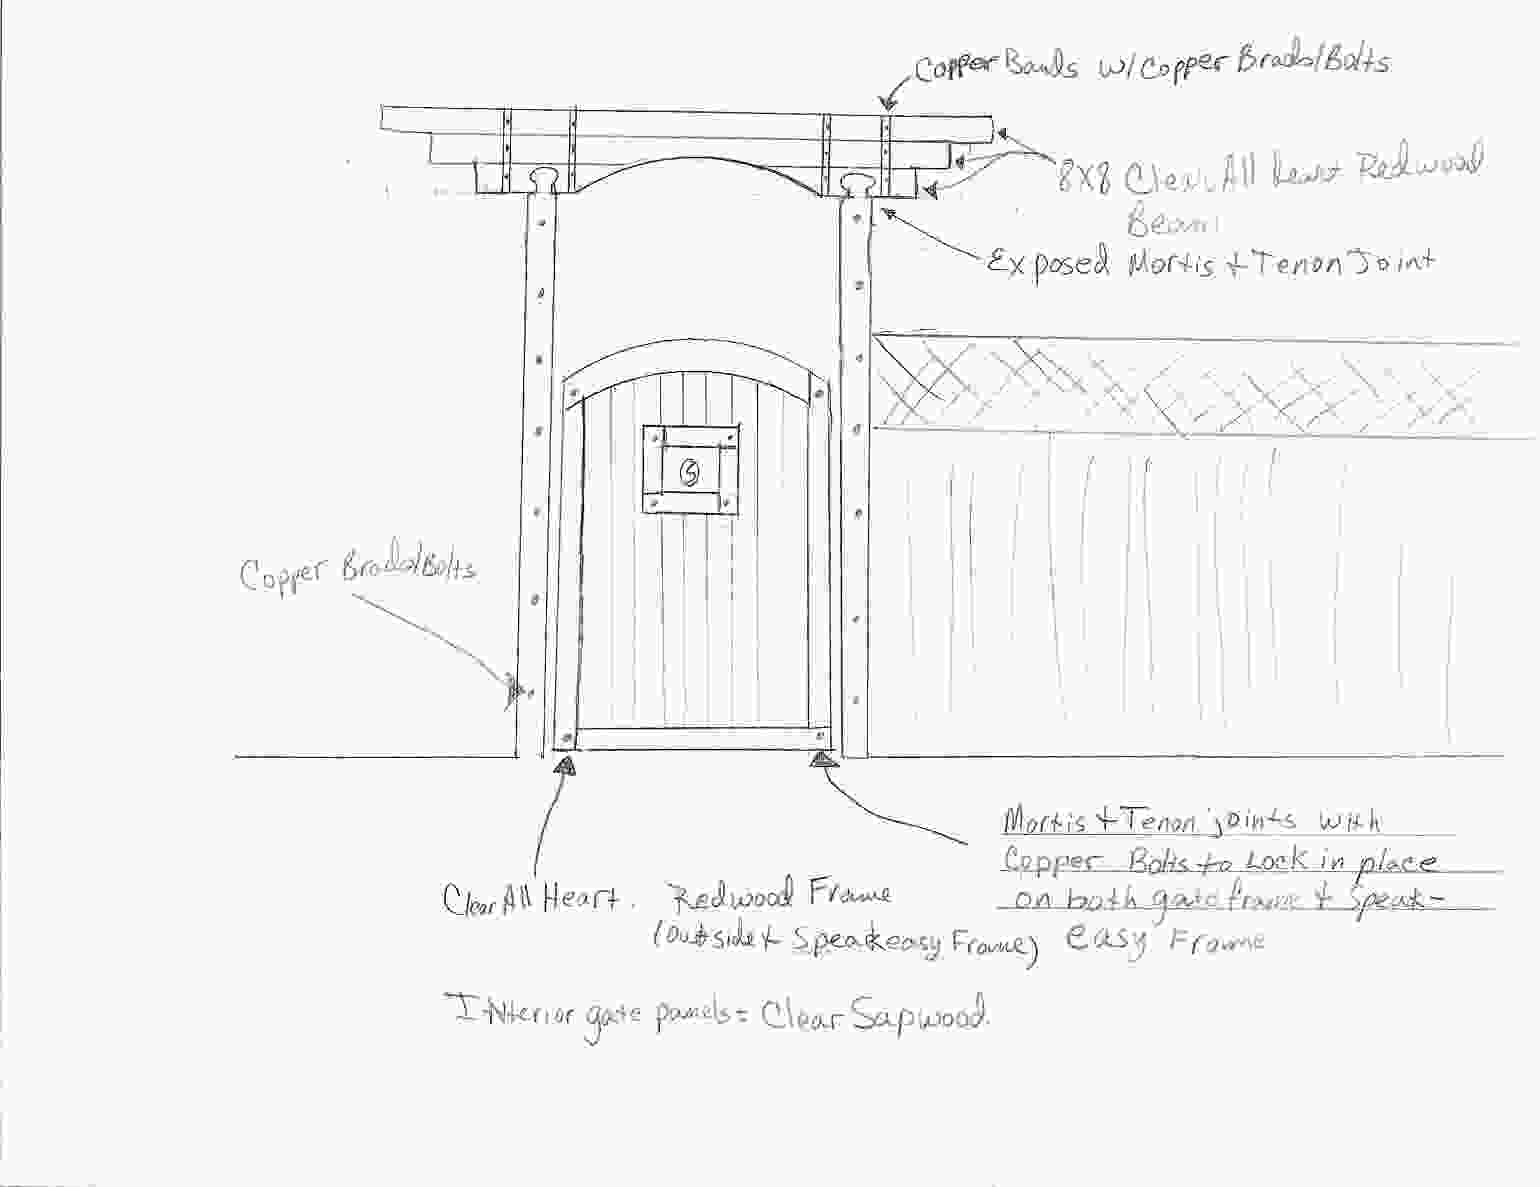 Copper Bands w/ Copper Brads/Bolts
8x8 Clear All heart Redwood
Beam
Exposed Mortis + Tenon Joint
S
Copper Brads/Bolts
Mortis + Tenon joints with
Copper Bolts to Lock in place
on both gate frame + Speak-
easy Frame
Clear All Heart. Redwood Frame
(outside + Speakeasy Frame)
Interior gate panels = Clear Sapwood.